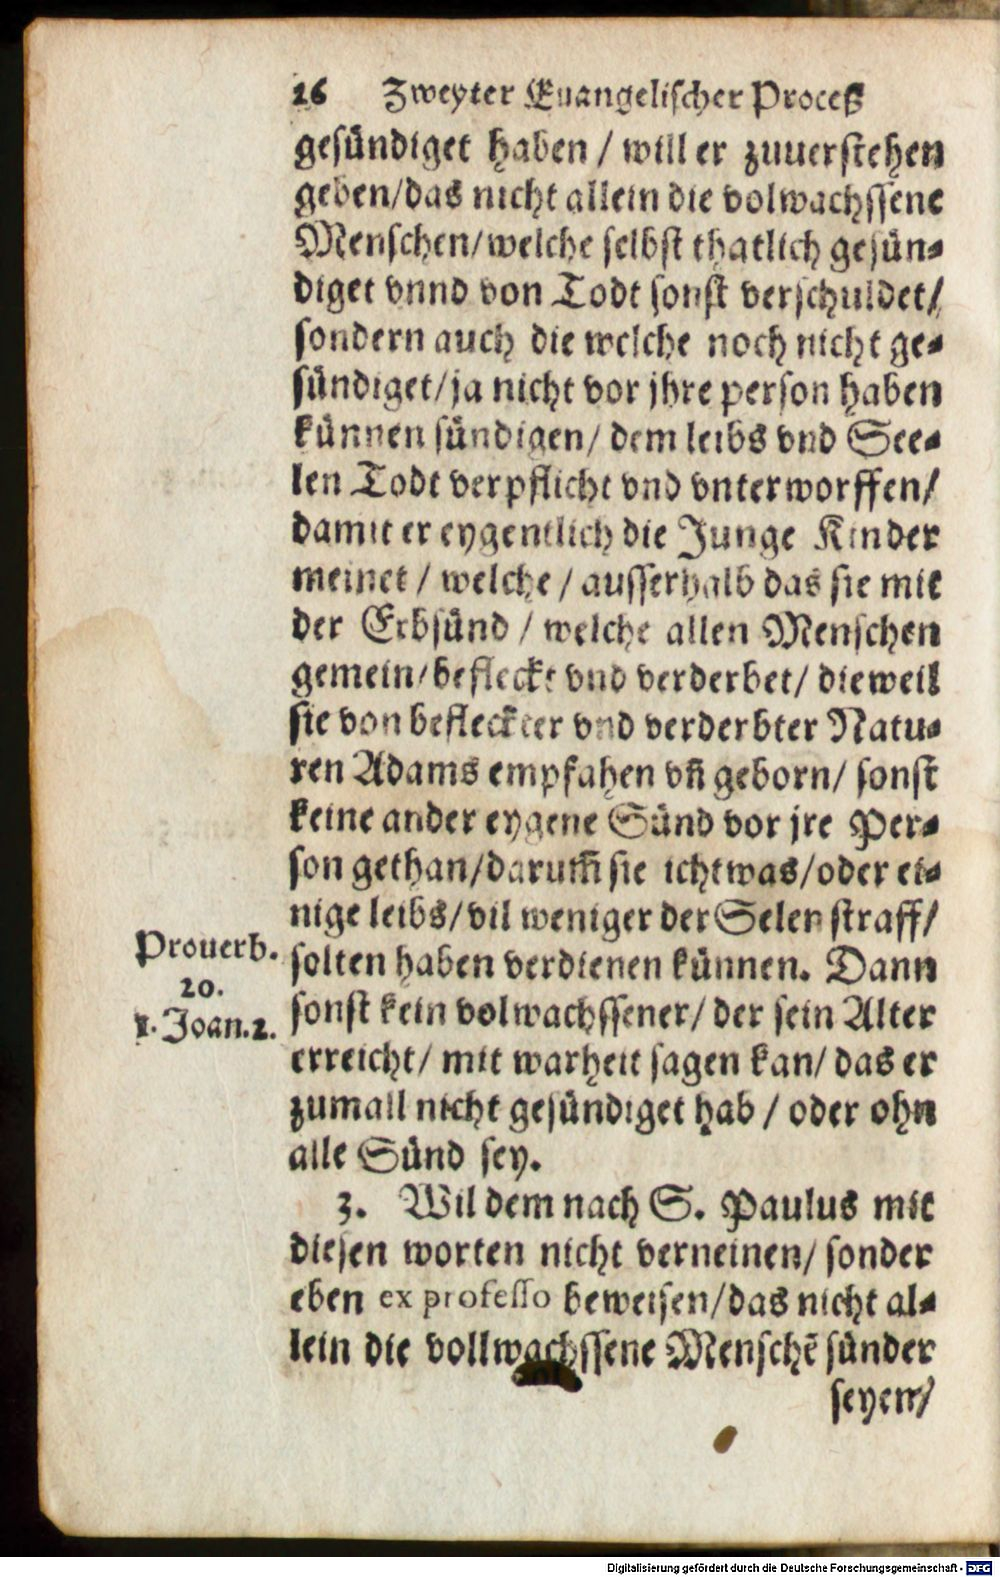 26 Zweyter Euangelischer Proceß
gesündiget haben / will er zuuerstehen
geben/das nicht allein die volwachssene
Menschen/welche selbst thatlich gesün⸗
diget vnnd von Todt sonst verschuldet/
sondern auch die welche noch nicht ge⸗
sündiget/ja nicht vor jhre person haben
künnen sündigen/ dem leibs vnd See⸗
len Todt verpflicht vnd vnterworffen/
damit er eygentlich die Junge Kinder
meinet / welche / ausserhalb das sie mit
der Erbsünd / welche allen Menschen
gemein/befleckt vnd verderbet/ dieweil
sie von befleckter vnd verderbter Natu⸗
ren Adams empfahen vn̄ geborn/ sonst
keine ander eygene Sünd vor jre Per⸗
son gethan/darum̄ sie ichtwas/oder ei⸗
nige leibs/vil weniger der Selen straff/
solten haben verdienen künnen. Dann
sonst kein volwachssener/ der sein Alter
erreicht/ mit warheit sagen kan/ das er
zumall nicht gesündiget hab / oder ohn
alle Sünd sey.
Prouerb.
20.
1. Joan. 2.
3. Wil dem nach S. Paulus mit
diesen worten nicht verneinen/ sonder
eben ex professo beweisen/das nicht al⸗
lein die vollwachssene Menschē sünder
seyen/
Digitalisierung gefördert durch die Deutsche Forschungsgemeinschaft - DFG